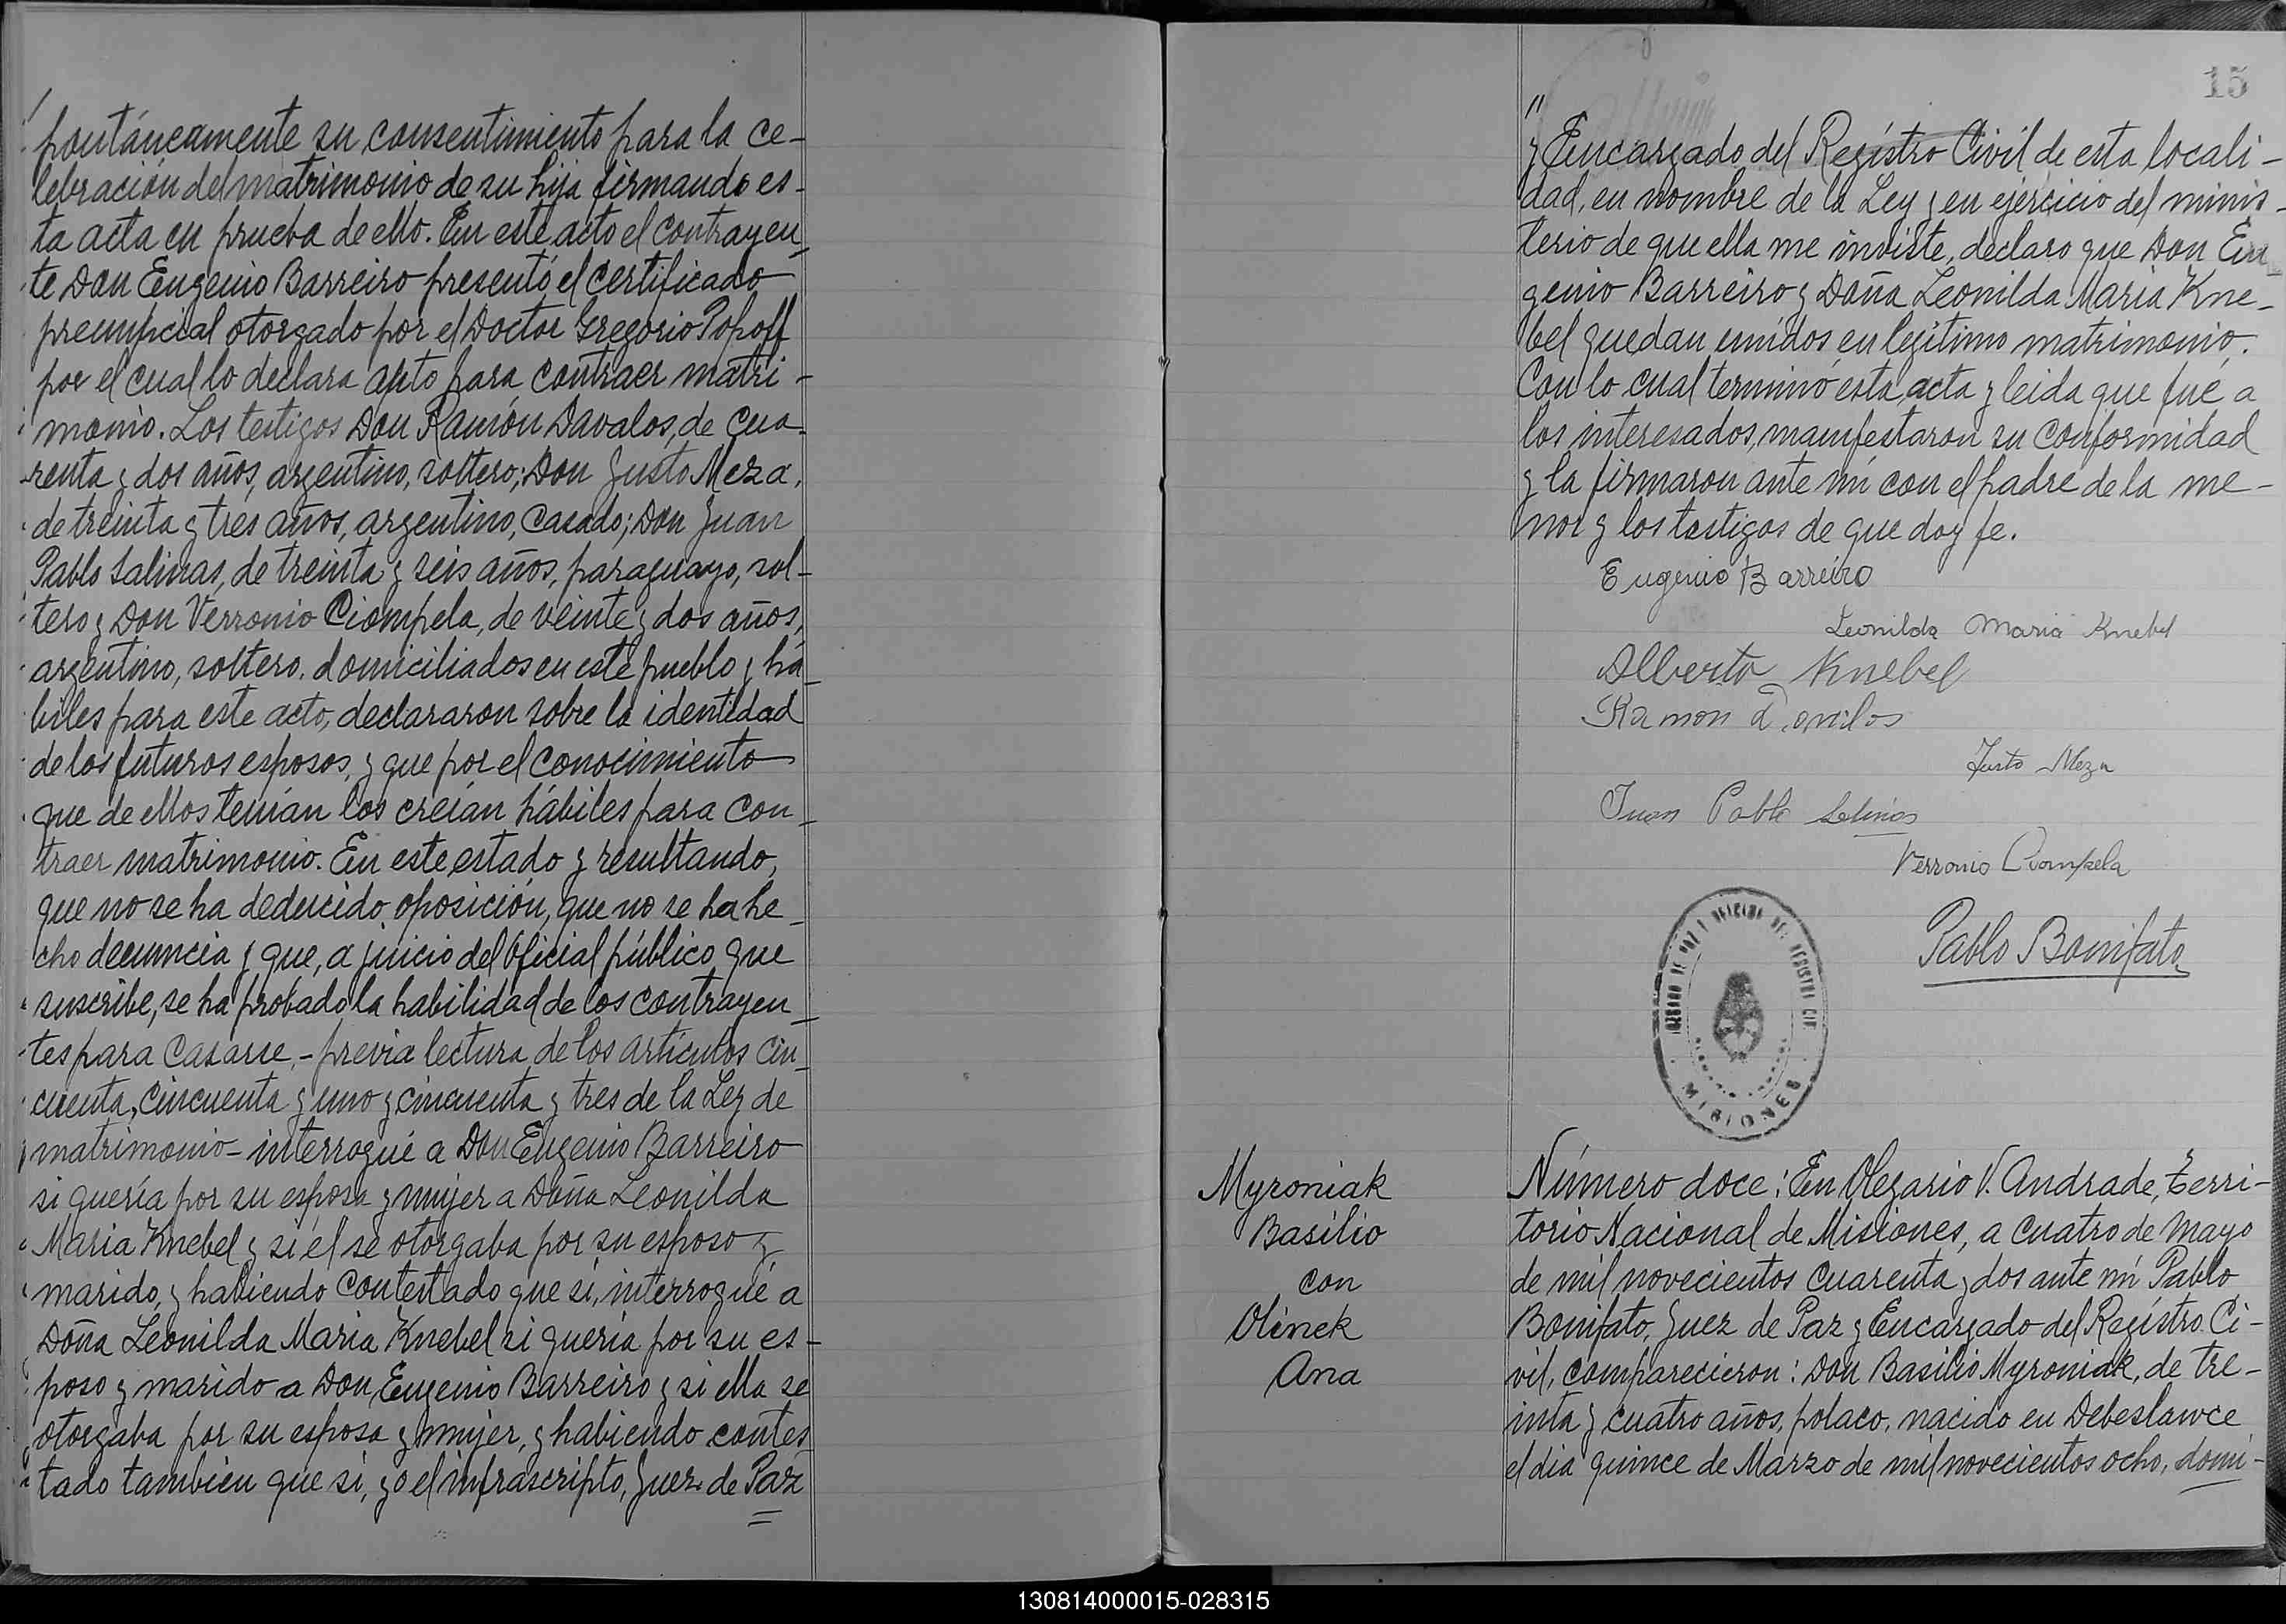 pontáneamente su consentimiento para la ce-
lebración del matrimonio de su hija firmando es-
ta acta en prueba de ello. En este acto el contrayen-
te Don Eugenio Barreiro presentó el certificado
prenupcial otorgado por el Doctor Gregorio Popoff
por el cual lo declara apto para contraer matri-
monio. Los testigos Don Ramón Davalos, de cua-
renta y dos años, argentino, soltero; Don Justo Meza,
de treinta y tres años, argentino, casado; Don Juan
Pablo Salinas, de treinta y seis años, paraguayo, sol-
tero y Don Verronio Ciompela, de veinte y dos años,
argentino, soltero. domiciliados en este pueblo y há-
biles para este acto, declararon sobre la identidad
de los futuros esposos, y que por el conocimiento
que de ellos tenían los creían hábiles para con-
traer matrimonio. En este estado y resultando,
que no se ha deducido oposición, que no se ha he-
cho denuncia y que, a juicio del Oficial público que
suscribe, se ha probado la habilidad de los contrayen-
tes para casarse,- previa lectura de los artículos cin-
cuenta, cincuenta y uno y cincuenta y tres de la Ley de
matrimonio- interrogué a Don Eugenio Barreiro
si quería por su esposa y mujer a Doña Leonilda
Maria Knebel y si él se otorgaba por su esposo y
marido, y habiendo contestado que sí, interrogué a
Doña Leonilda Maria Knebel si quería por su es-
poso y marido a Don Eugenio Barreiro y si ella se
otorgaba por su esposa y mujer, y habiendo contes-
tado también que si, yo el infrascripto, Juez de Paz
15
"
y Encargado del Registro Civil de esta locali-
dad, en nombre de la Ley y en ejercicio del minis-
terio de que ella me inviste, declaro que Don Eu-
genio Barreiro y Doña Leonilda Maria Kne-
bel quedan unidos en legítimo matrimonio.
Con lo cual terminó esta acta y leida que fué a
los interesados, manifestaron su conformidad
y la firmaron ante mí con el padre de la me-
nor y los testigos de que doy fe.
Eugenio Barreiro
Leonilda Maria Knebel
Alberto Knebel
Ramon Davalos
Justo Meza
Juan Pablo Salinas
Verronio Ciompela
Pablo Bonifato
JUZGADO DE PAZ Y OFICINA DEL REGISTRO CIVIL
MISIONES
Myroniak
Basilio
con
Olinek
Ana
Número doce: En Olegario V. Andrade, Terri-
torio Nacional de Misiones, a cuatro de Mayo
de mil novecientos cuarenta y dos ante mí Pablo
Bonifato, Juez de Paz y Encargado del Registro Ci-
vil, comparecieron: Don Basilio Myroniak, de tre-
inta y cuatro años, polaco, nacido en Debeslawce
el día quince de Marzo de mil novecientos ocho, domi-
130814000015-028315